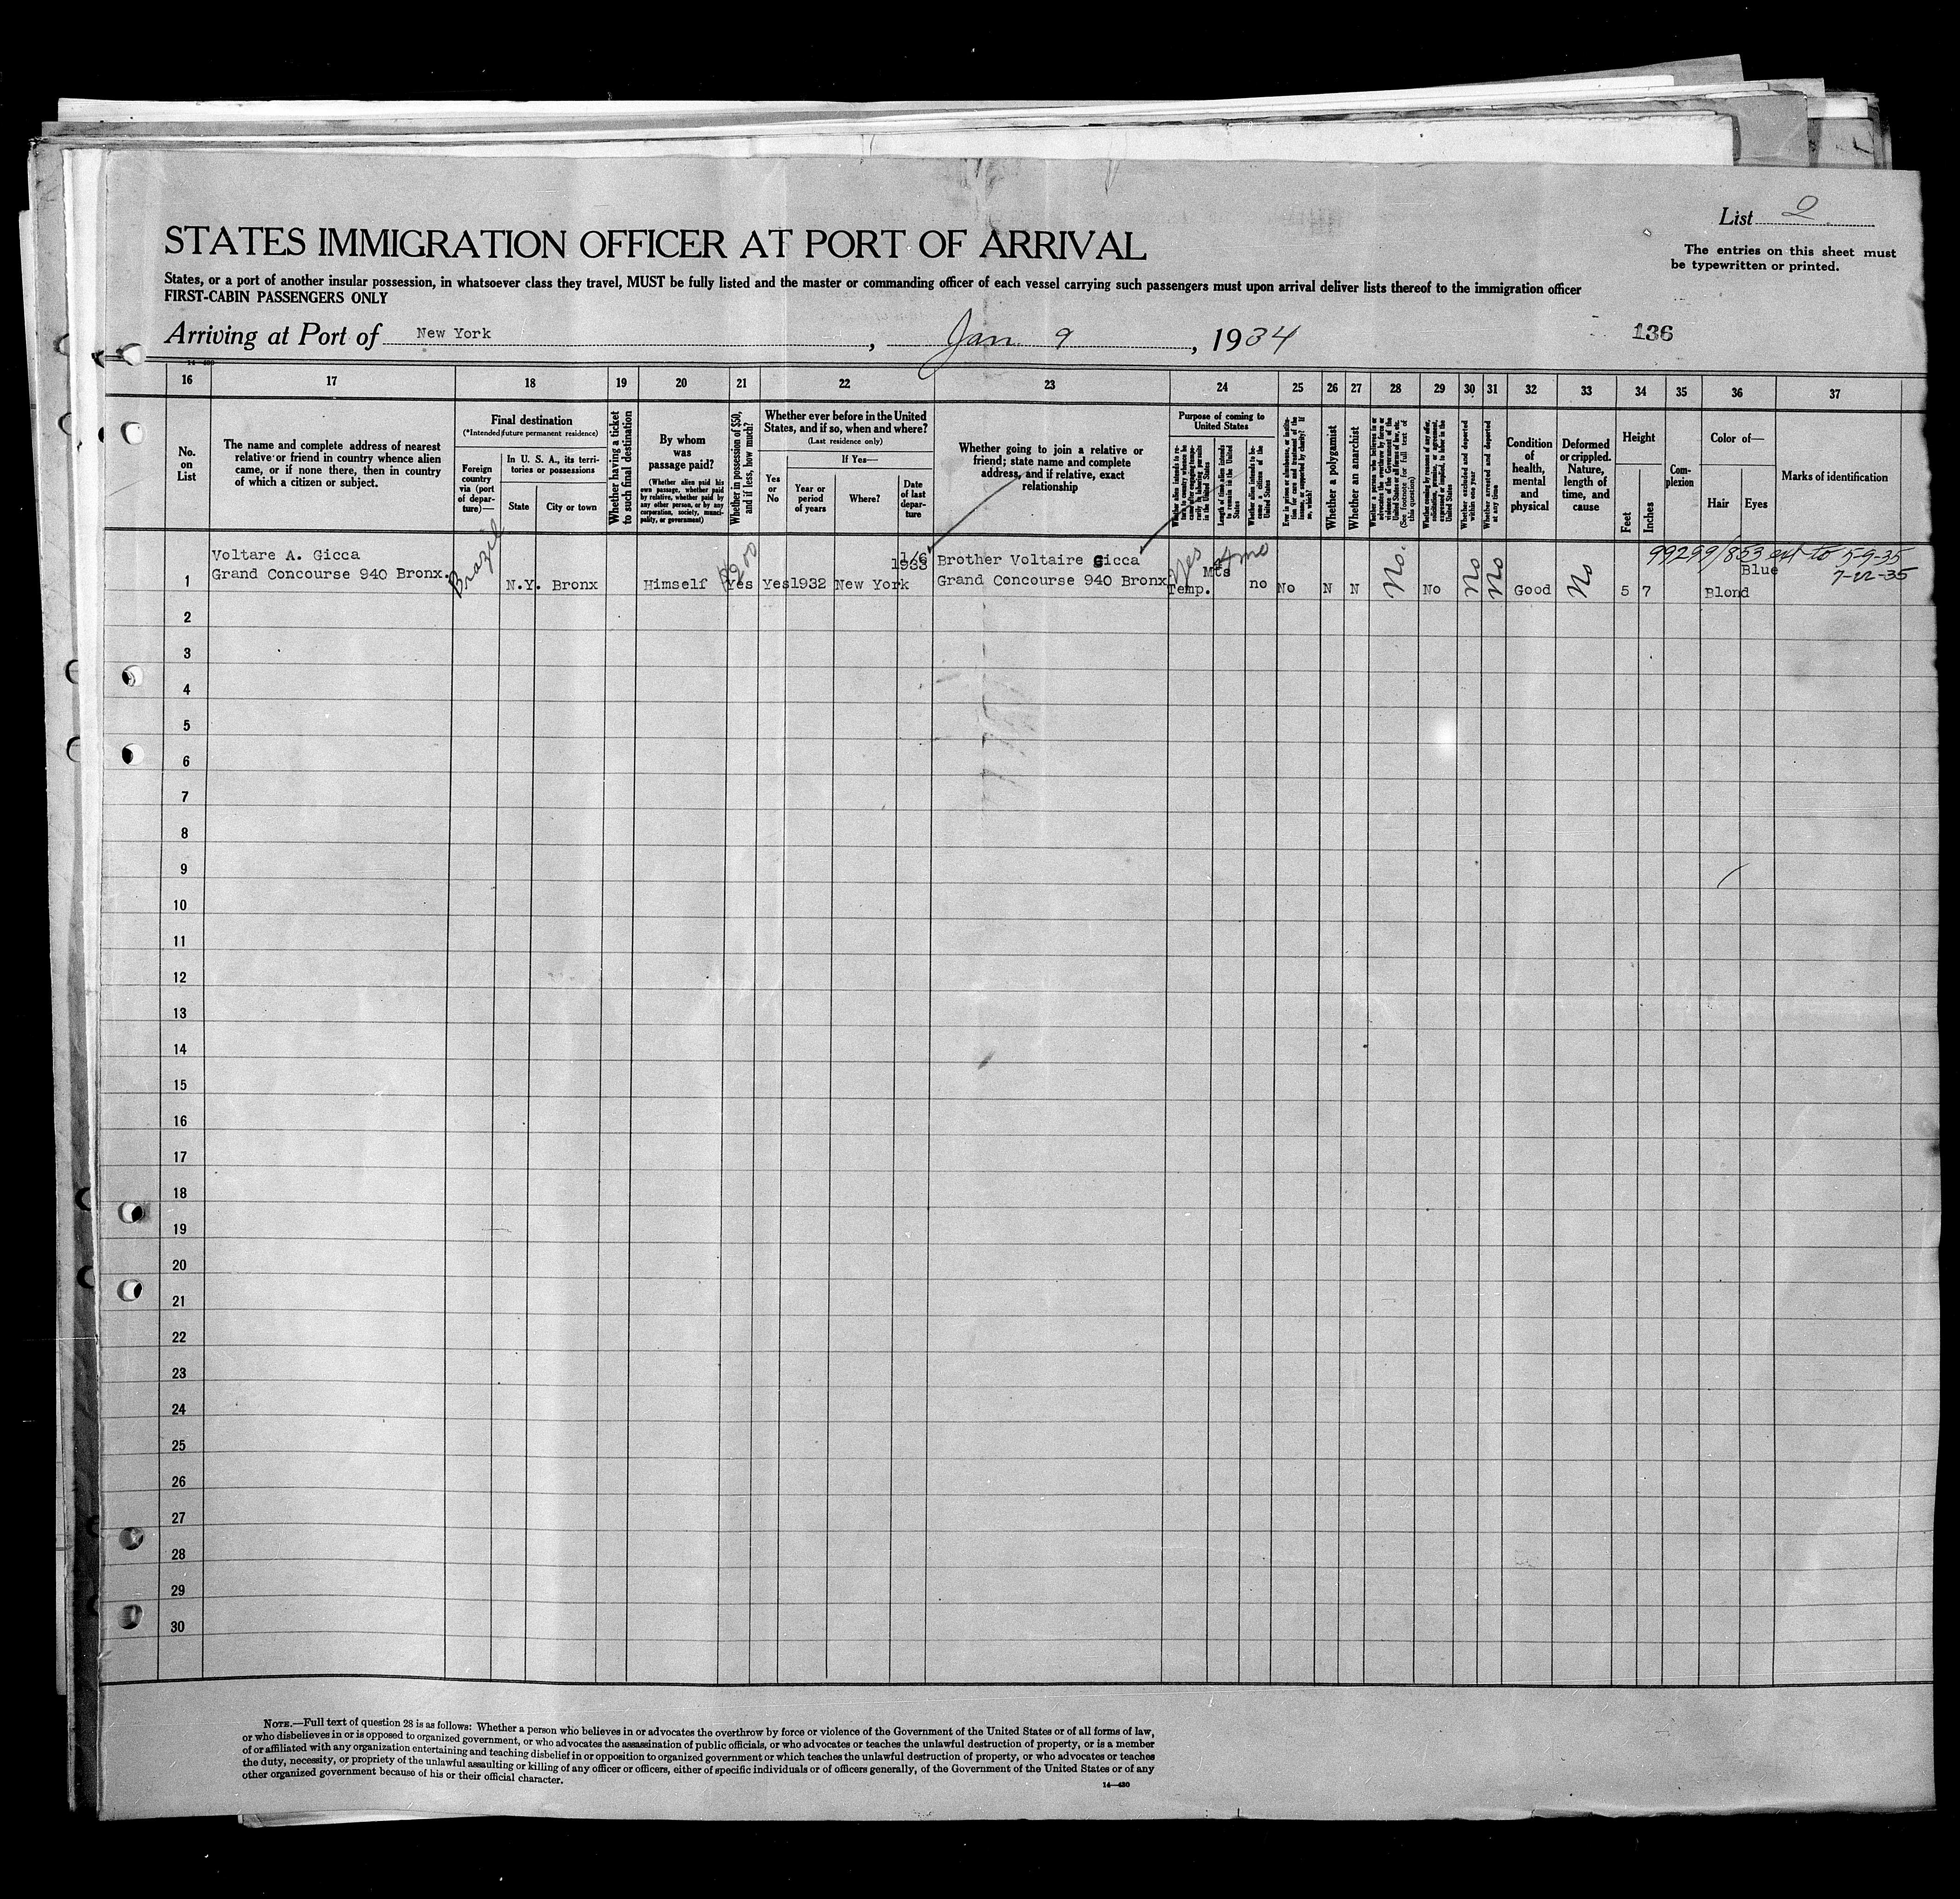 List 2
STATES IMMIGRATION OFFICER AT PORT OF ARRIVAL
The entries on this sheet must
be typewritten or printed.
States, or a port of another insular possession, in whatsoever class they travel, MUST be fully listed and the master or commanding officer of each vessel carrying such passengers must upon arrival deliver lists thereof to the immigration officer
FIRST-CABIN PASSENGERS ONLY
Arriving at Port of New York, Jan 9, 1934
136
16 17 18 19 20 21 22 23 24 25 26 27 28 29 30 31 32 33 34 35 36 37
No.
on
List
The name and complete address of nearest
relative or friend in country whence alien
came, or if none there, then in country
of which a citizen or subject.
Final destination
(*Intended future permanent residence)
Foreign
country
via (port
of depar-
ture)—
In U. S. A., its terri-
tories or possessions
State
City or town
Whether having a ticket
to such final destination
By whom
was
passage paid?
(Whether alien paid his
own passage, whether paid
by relative, whether paid by
any other person, or by any
corporation, society, munici-
pality, or government)
Whether in possession of $50,
and if less, how much?
Whether ever before in the United
States, and if so, when and where?
(Last residence only)
Yes
or
No
If Yes—
Year or
period
of years
Where?
Date
of last
depar-
ture
Whether going to join a relative or
friend; state name and complete
address, and if relative, exact
relationship
Purpose of coming to
United States
Length of time alien intends
to remain in the United
States
Whether alien intends to be-
come a citizen of the
United States
Whether a polygamist
Whether an anarchist
(See footnote for full text of
this question)
Whether excluded and deported
within one year
Whether arrested and deported
at any time
Condition
of
health,
mental
and
physical
Deformed
or crippled.
Nature,
length of
time, and
cause
Height
Feet
Inches
Com-
plexion
Color of—
Hair
Eyes
Marks of identification
99299/853 ext to 5-9-35
7-22-35
Voltare A. Gicca
Grand Concourse 940 Bronx.
Brazil
1 N.Y. Bronx Himself $200 Yes Yes 1932 New York
1/6
1933
Brother Voltaire Gicca
Grand Concourse 940 Bronx
Yes
Temp.
Mts
4 mo
no No N N No. No No No Good No 5 7 Blond Blue
2
3
4
5
6
7
8
9
10
11
12
13
14
15
16
17
18
19
20
21
22
23
24
25
26
27
28
29
30
NOTE.—Full text of question 28 is as follows: Whether a person who believes in or advocates the overthrow by force or violence of the Government of the United States or of all forms of law,
or who disbelieves in or is opposed to organized government, or who advocates the assassination of public officials, or who advocates or teaches the unlawful destruction of property, or is a member
of or affiliated with any organization entertaining and teaching disbelief in or opposition to organized government or which teaches the unlawful destruction of property, or who advocates or teaches
the duty, necessity, or propriety of the unlawful assaulting or killing of any officer or officers, either of specific individuals or of officers generally, of the Government of the United States or of any
other organized government because of his or their official character.
14—430